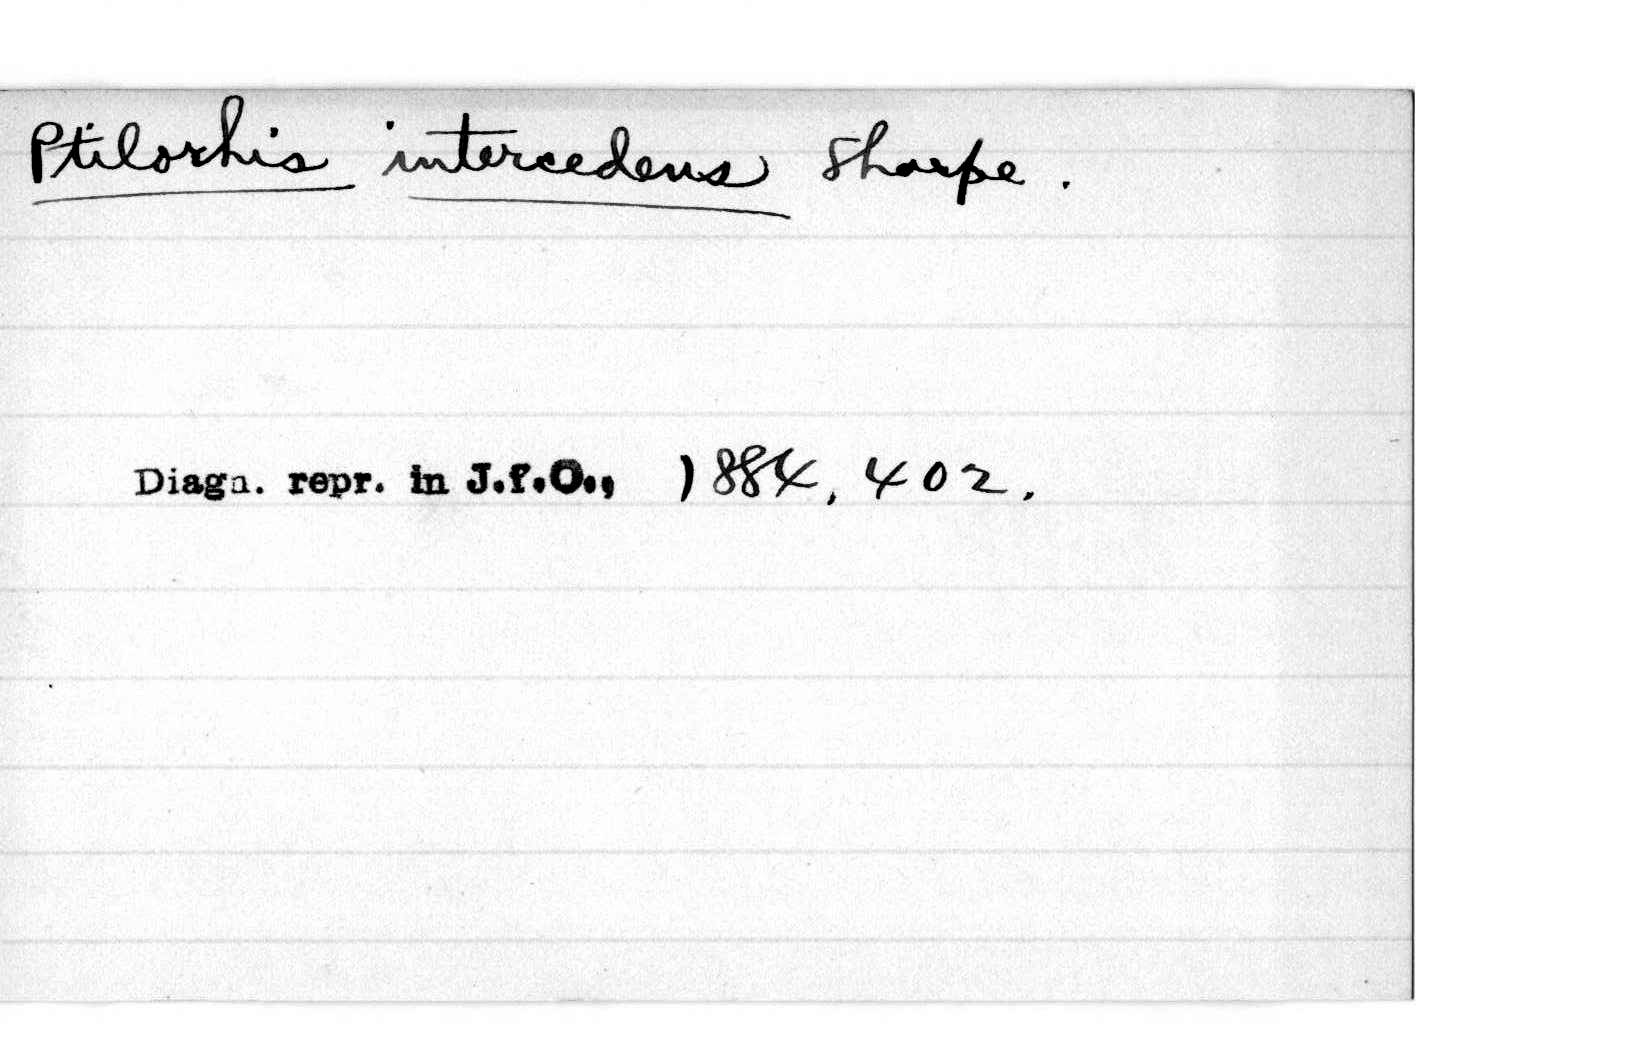 Ptilorhis intercedens Sharpe.
Diagn. repr. in J.f.O., 1884, 402.